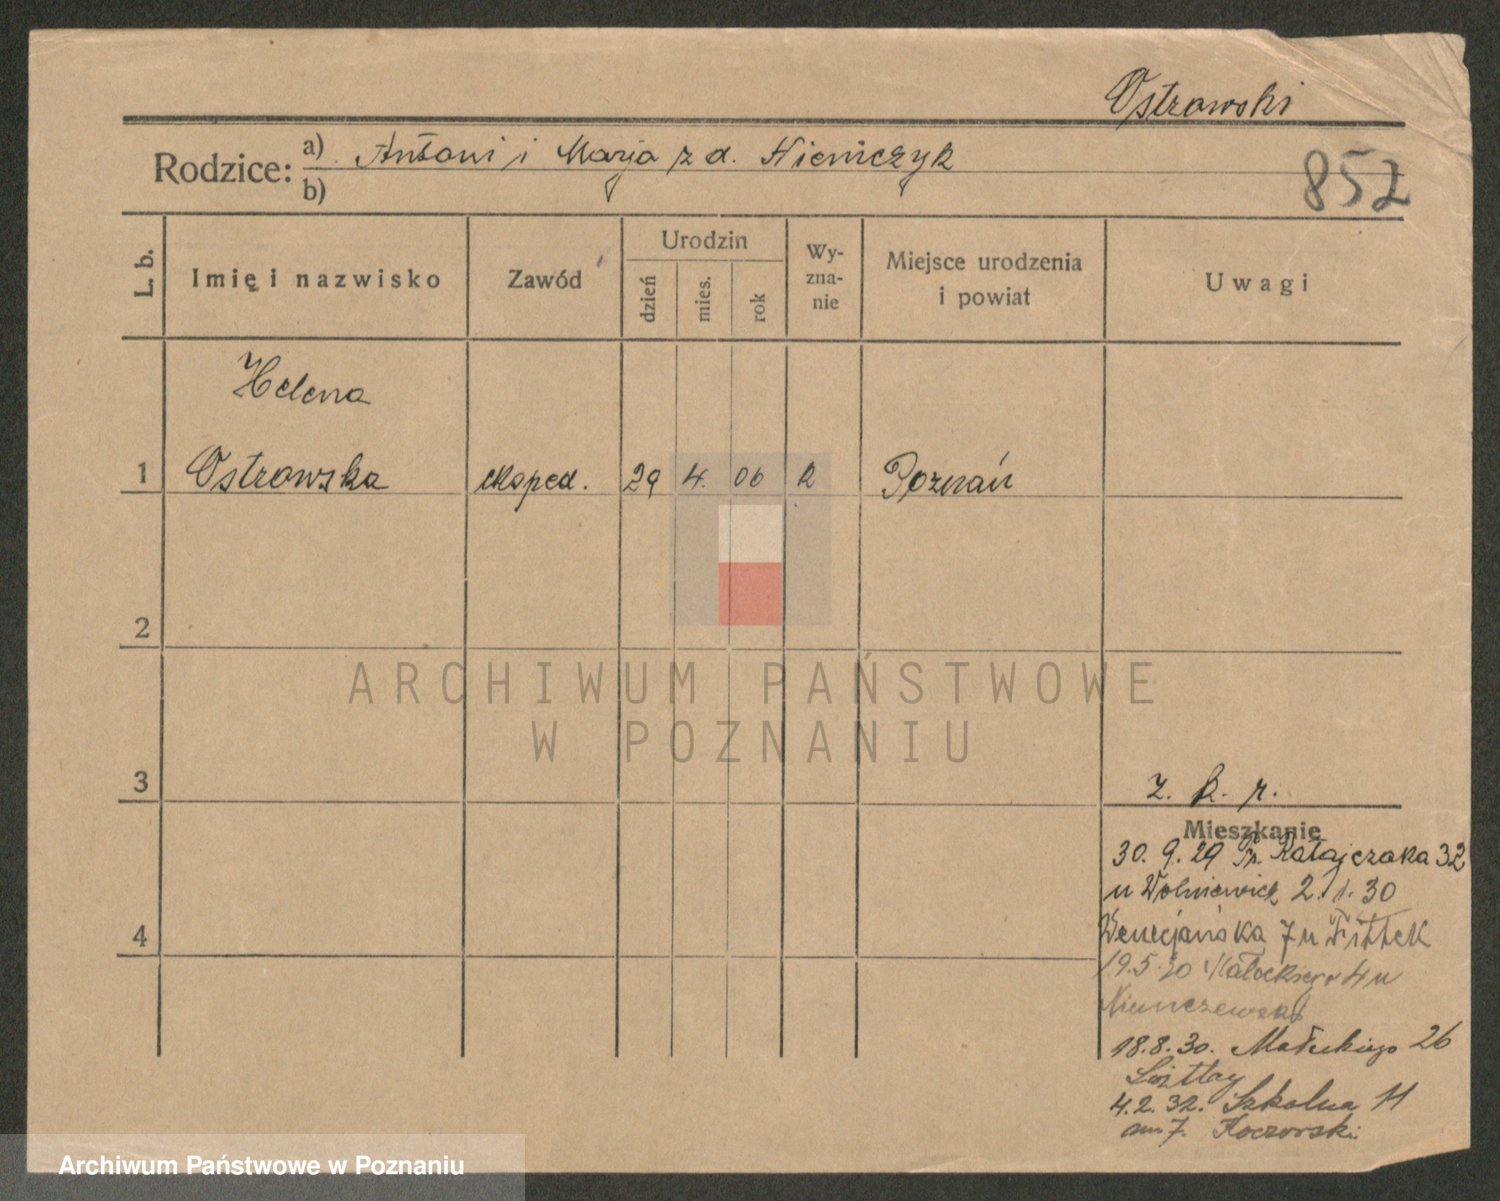 Ostrowski
Rodzice: a) Antoni i Marja z d. Niemczyk
b)
852
L. b.
Imię i nazwisko
Zawód
Urodzin
dzień
mies.
rok
Wy-
zna-
nie
Miejsce urodzenia
i powiat
Uwagi
Helena
1 Ostrowska eksped. 29 4. 06 k Poznań
2
ARCHIWUM PAŃSTWOWE
W POZNANIU
3
z. k. r.
Mieszkanie
30. 9. 29 Fr. Ratajczaka 32
u Wolniewicz 2. 1. 30
4
Wenecjańska 7 u Fittek
19.5.30 Małeckiego 4 u
18.8.30. Małeckiego 26
4.2.32. Szkolna 11
m 7. Koczorski
Archiwum Państwowe w Poznaniu